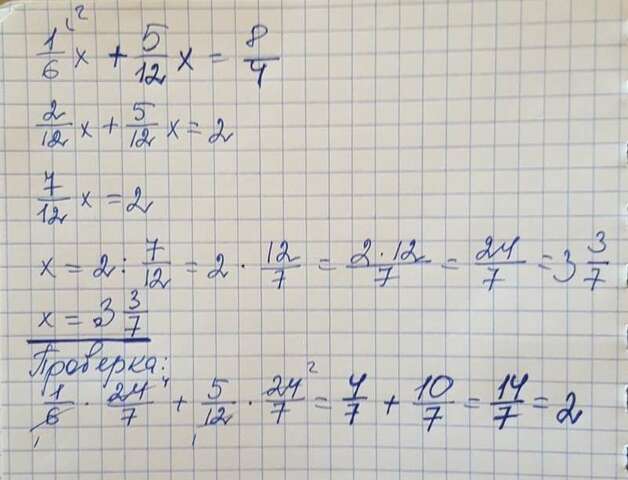 1/6^(2 x + 5/12 x = 8/4
2/12 x + 5/12 x = 2
7/12 x = 2
x = 2 : 7/12 = 2 · 12/7 = 2·12/7 = 24/7 = 3 3/7
x = 3 3/7
Проверка:
1/6 · 24/7 + 5/12 · 24/7 = 4/7 + 10/7 = 14/7 = 2